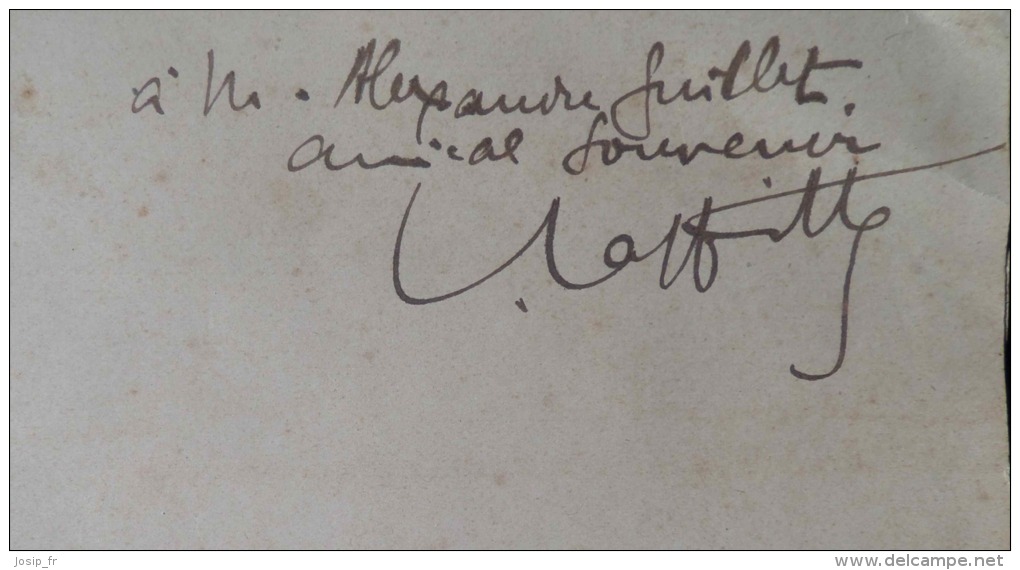 à M. Alexandre Guillet.
amical Souvenir
Laffitte
Josip_fr
www.delcampe.net